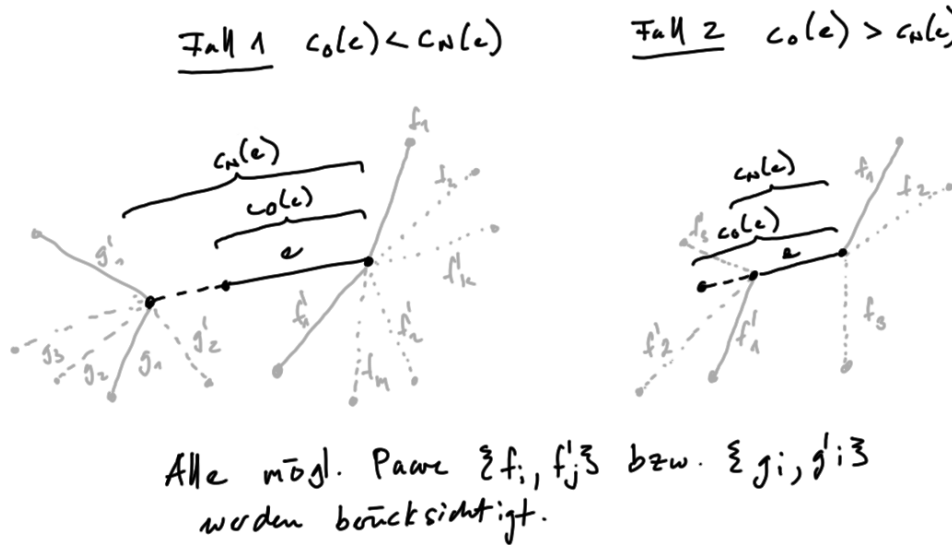 Fall 1 c₀(e) < c_N(e)
Fall 2 c₀(e) > c_N(e)
c_N(e)
c₀(e)
e
f₁
f₂
f'ₖ
f'₂
fₘ
f'₁
g'₁
g'₂
g₁
g₂
g₃
c_N(e)
c₀(e)
e
f₁
f₂
f₃
f'₁
f'₂
f'₃
Alle mögl. Paare {fᵢ, f'ⱼ} bzw. {gᵢ, g'ᵢ}
werden berücksichtigt.